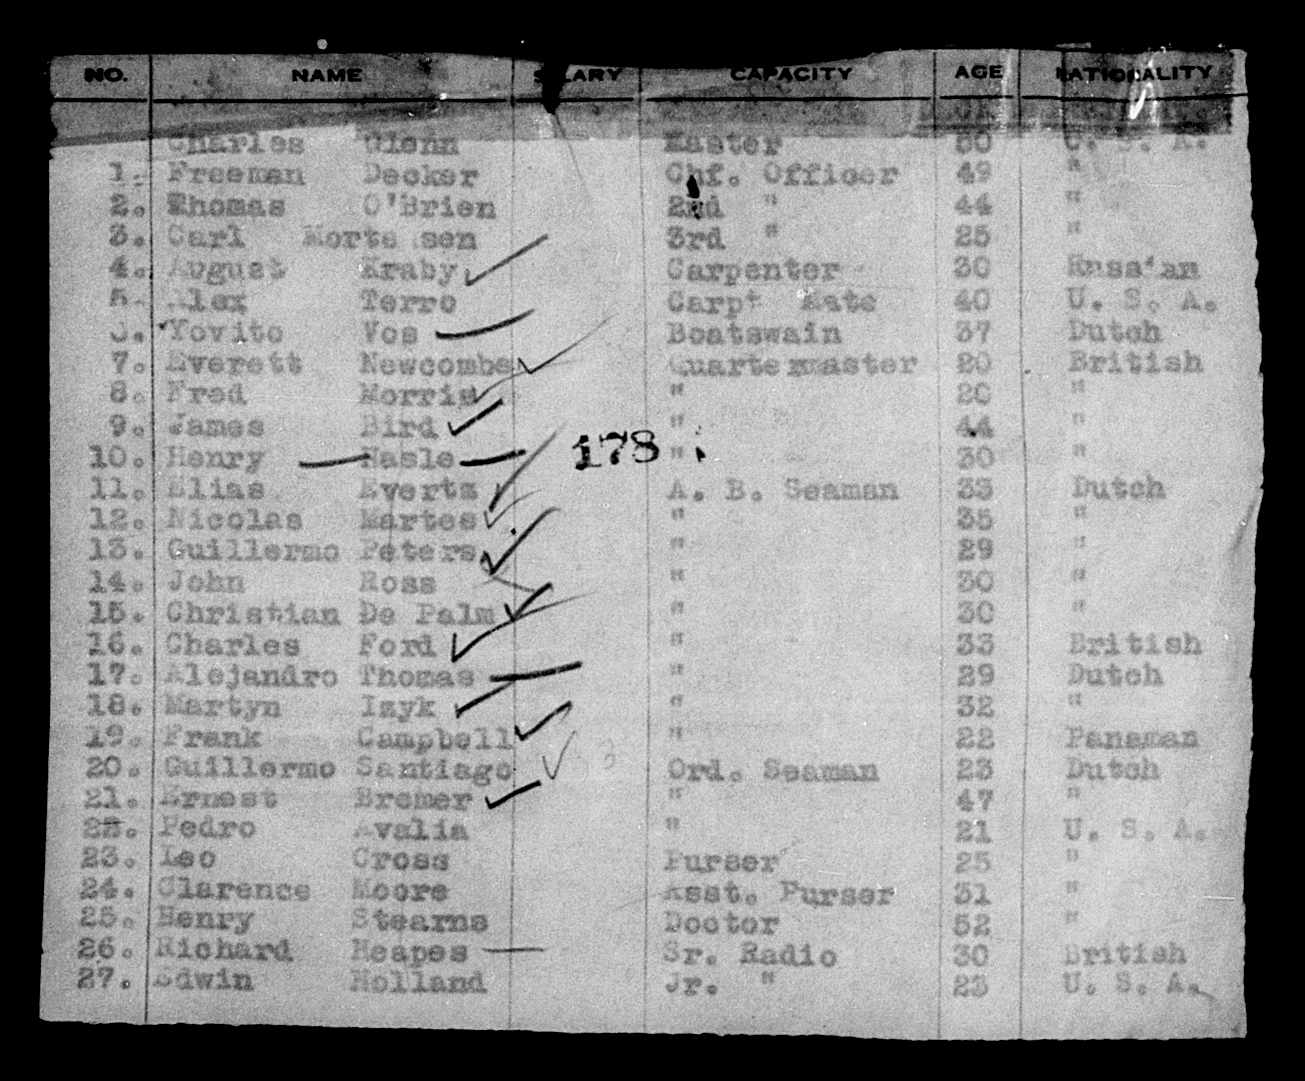 NO. NAME SALARY CAPACITY AGE NATIONALITY
Charles Glenn Master 50 U. S. A.
1. Freeman Decker Chf. Officer 49 "
2. Thomas O'Brien 2nd " 44 "
3. Carl Morte sen 3rd " 25 "
4. August Kraby Carpenter 30 Russian
5. Alex Terro Carpt Mate 40 U. S. A.
6. Yovito Vos Boatswain 37 Dutch
7. Everett Newcombe Quartermaster 20 British
8. Fred Morris " 20 "
9. James Bird " 44 "
10. Henry Hasle 178 " 30 "
11. Elias Everts A. B. Seaman 33 Dutch
12. Nicolas Martes " 35 "
13. Guillermo Peters " 29 "
14. John Ross " 30 "
15. Christian De Palm " 30 "
16. Charles Ford " 33 British
17. Alejandro Thomas " 29 Dutch
18. Martyn Izyk " 32 "
19. Frank Campbell " 22 Panaman
20. Guillermo Santiago 3 Ord. Seaman 23 Dutch
21. Ernest Bremer " 47 "
22. Pedro Avalia " 21 U. S. A.
23. Leo Cross Purser 25 "
24. Clarence Moore Asst. Purser 31 "
25. Henry Stearns Doctor 52 "
26. Richard Heapes Sr. Radio 30 British
27. Edwin Holland Jr. " 23 U. S. A.